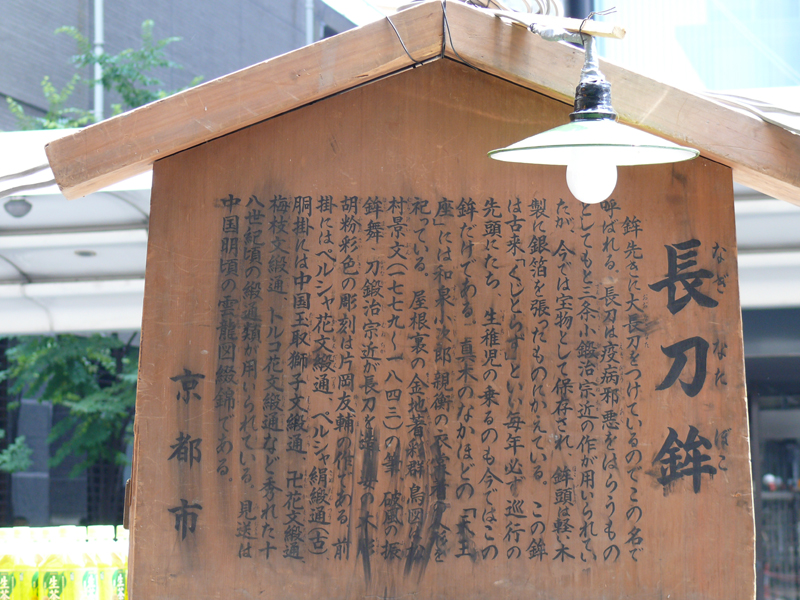 長刀鉾
なぎ なた ぼこ
鉾先きに大長刀をつけているのでこの名で
呼ばれる。長刀は疫病邪悪をはらうもの
としてもと三条小鍛治宗近の作が用いられてい
たが、今では宝物として保存され、鉾頭は軽い木
製に銀箔を張ったものにかえている。この鉾
は古来「くじとらず」といい毎年必ず巡行の
先頭にたち、生稚児の乗るのも今ではこの
鉾だけである。真木のなかほどの「天王
座」には和泉小次郎親衡の衣裳着の人形を
祀っている。屋根裏の金地著彩群鳥図は松
村景文(一七七九〜一八四三)の筆、破風の
鉾舞、刀鍛冶宗近が長刀を造る
胡粉彩色の彫刻は片岡友輔の作である。前
掛にはペルシャ花文緞通、ペルシャ絹緞通
胴掛には中国玉取獅子文緞通、卍花文緞通、
梅枝文緞通、トルコ花文緞通など秀れた十
八世紀頃の緞通類が用いられている。見送は
中国明頃の雲龍図綴錦である。
京都市
生茶
生茶